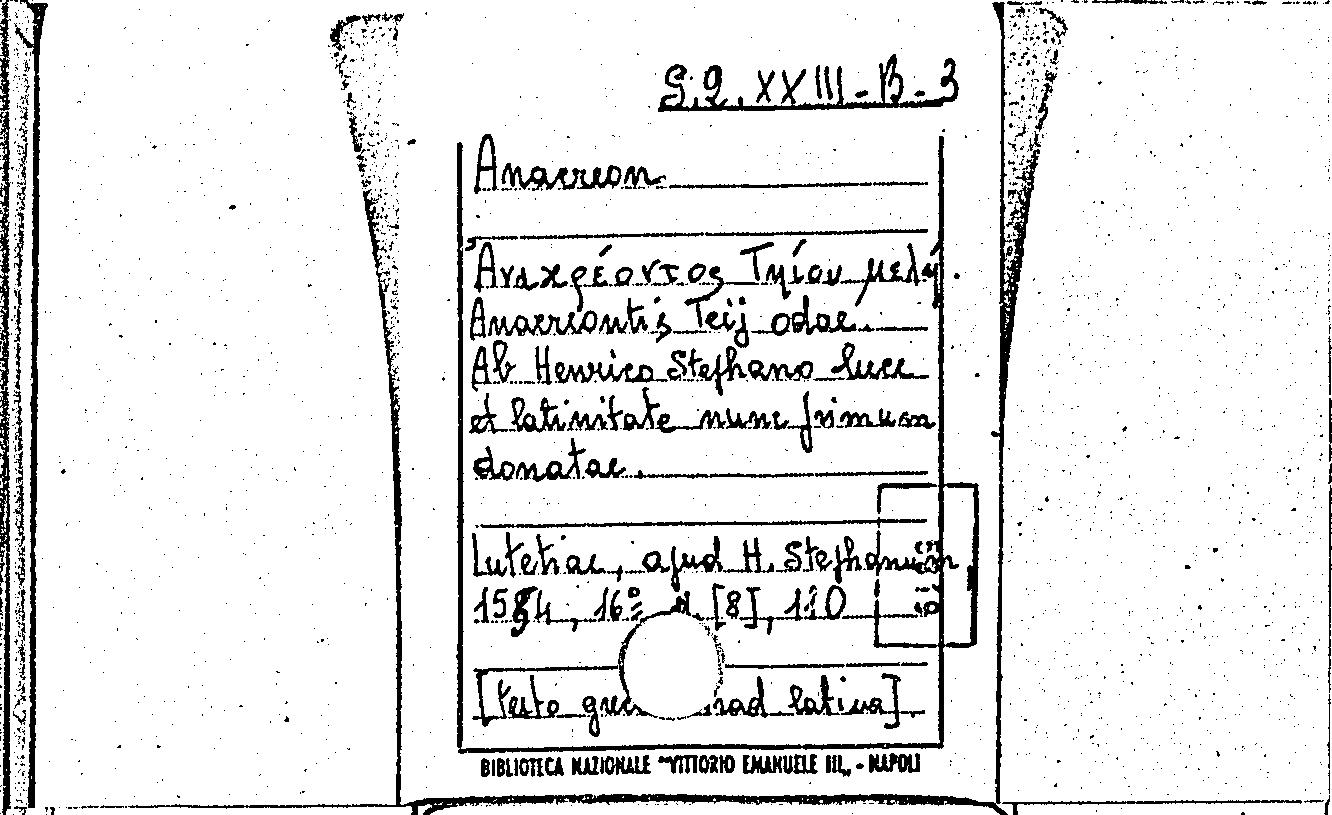 S.Q. XXIII-B-3
Anacreon
Ἀνακρέοντος Τηίου μελή.
Anacreontis Teij odae.
Ab Henrico Stephano luce
et latinitate nunc primum
donatae.
Lutetiae, apud H. Stephanum
16º [8], 110
[testo latina].
BIBLIOTECA NAZIONALE "VITTORIO EMANUELE III„ - NAPOLI